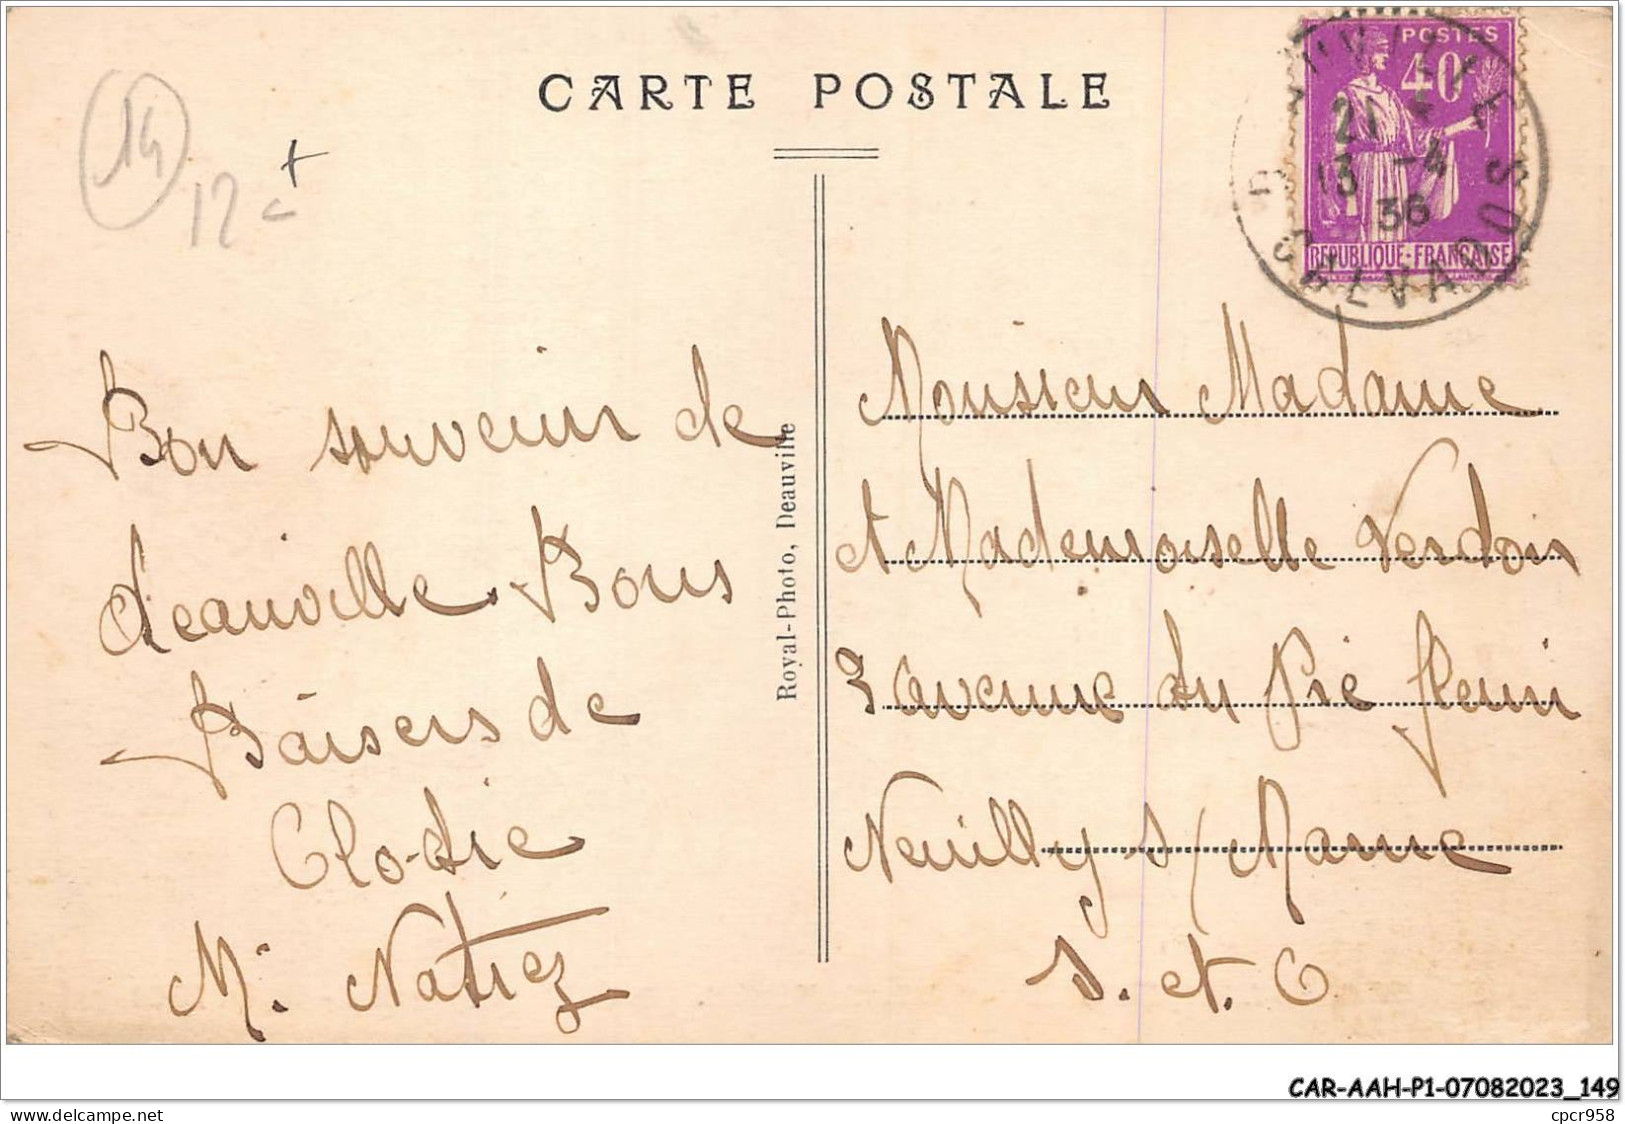 CARTE POSTALE
14
12
POSTES
40
21
13 -4
36
CALVADOS
REPUBLIQUE-FRANÇAISE
Bon souvenir de
deauville Bons
Baisers de
Clodie
M. Natrez
Royal-Photo, Deauville
Monsieur Madame
et Mademoiselle Verdois
3 avenue du Pré fleuri
Neuilly s/ Marne
S. et. O
CAR-AAH-P1-07082023_149
www.delcampe.net
cpcr958